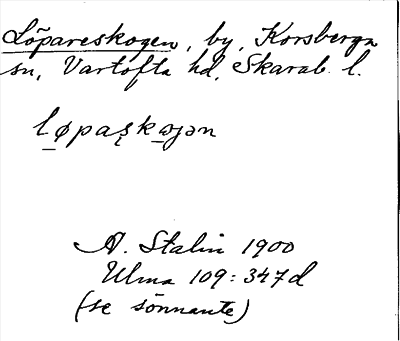 Löpareskogen, by, Korsberga
sn, Vartofta hd, Skarab. l.
løpaʂkɷɟən
A. Stalin 1900
Ulma 109:347d
(se sönnante)